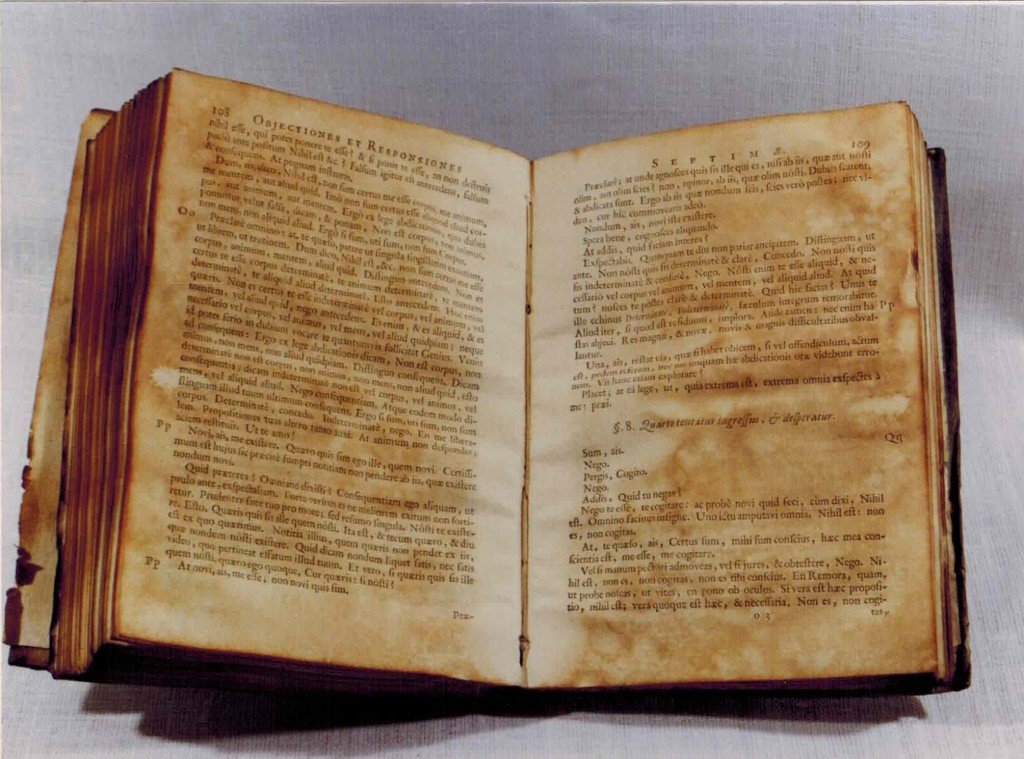 108 OBJECTIONES ET RESPONSIONES
nihil esse, qui potes ponere te esse? & si ponis te esse, an non destruis
paulò ante positum Nihil est &c? Falsum igitur est antecedens, falsum
& consequens. At pugnam instauras.
Dum, ais, dico, Nihil est, non sum certus me esse corpus, me animum,
me mentem, aut aliud quid. Imò non sum certus esse aliquod aliud cor-
pus, aut animum, aut mentem. Ergo ex lege abdicationis, quâ dubia
ponuntur velut falsa, dicam, & ponam, Non est corpus, non animus,
non mens, non aliquid aliud. Ergo si sum, uti sum, non sum Corpus.
Oo Præclarè omnino: at, te quæso, patere ut singula singillatim excutiam,
ut librem, ut trutinem. Dum dico, Nihil est, &c. non sum certus me esse
corpus, animum, mentem, aliud quid. Distinguo antecedens. Non es
certus te esse corpus determinatè, te animum determinatè, te mentem
determinatè, te aliquid aliud determinatè. Esto antecedens. Hoc enim
quæris. Non es certus te esse indeterminatè vel corpus, vel animum, vel
mentem, vel aliud quid, nego antecedens. Es enim, & es aliquid, & es
necessario vel corpus, vel animus, vel mens, vel aliud quidpiam: neque
id potes seriò in dubium vocare te quantumvis sollicitet Genius. Venio
ad consequens: Ergo ex lege abdicationis dicam, Non est corpus, non
animus, non mens, non aliud quidpiam. Distinguo consequens. Dicam
determinatè non est corpus, non animus, non mens, non aliud quid, esto
consequentia: dicam indeterminatè non est vel corpus, vel animus, vel
mens, vel aliquid aliud. Nego consequentiam. Atque eodem modo di-
stinguam illud tuum ultimum consequens. Ergo si sum, uti sum, non sum
corpus. Determinatè, concedo. Indeterminatè, nego. En me libera-
lem. Propositiones tuas altero tanto auxi. At animum non despondes;
aciem restituis. Ut te amo!
Pp Novi, ais, me existere. Quæro quis sim ego ille, quem novi. Certissi-
mum est hujus sic præcisè sumpti notitiam non pendere ab iis, quæ existere
nondum novi.
Quid præterea? Omniane dixisti? Consequentiam ego aliquam, ut
paulò ante, exspectabam. Fortè veritus es ne meliorem exitum non sorti-
retur. Prudenter sane tuo pro more; sed resumo singula. Nôsti te existe-
re. Esto. Quæris quis sis ille quem nôsti. Ita est, & tecum quæro, & diu
est ex quo quærimus. Notitia illius, quem quæris non pendet ex iis,
quæ nondum nôsti existere. Quid dicam nondum liquet satis, nec satis
video, quo pertineat effatum illud tuum. Et vero, si quæris quis sis ille
quem nôsti, quæro ego quoque, Cur quæris: si nôsti?
Pp At novi, ais, me esse, non novi quis sim,
Præ-
SEPTIMÆ. 109
Præclarè; at unde agnosces quis sis ille qui es, nisi ab iis, quæ aut nôsti
olim, aut olim scies? non, opinor, ab iis, quæ olim nôsti. Dubiis scatent,
& abdicata sunt. Ergo ab iis quæ nondum scis, scies verò postea; nec vi-
deo, cur hic commoveare adeo.
Nondum, ais, novi ista existere.
Spera bene, cognosces aliquando.
At addis, quid faciam interea?
Exspectabis. Quamquam te diu non patiar ancipitem. Distinguam, ut
ante. Non nôsti quis sis determinatè & clarè, Concedo. Non nosti quis
sis indeterminatè & confusè, Nego. Nôsti enim te esse aliquid, & ne-
cessario vel corpus vel animum, vel mentem, vel aliquid aliud. At quid
tum? nosces te postea clarè & determinatè. Quid hîc facias? Unus te
ille echinus Determinatè, Indeterminatè, sæculum integrum remorabitur.
Aliud iter, si quod est residuum, implora. Aude tamen: nec enim ha- Pp
stas abjeci. Res magnæ, & novæ, novis & magnis difficultatibus obval-
lantur.
Una, ais, restat via, quæ si habet obicem, si vel offendiculum, actum
est, pedem retraham, nec me unquam hæ abdicationis oræ videbunt erro-
nem. Vis hanc etiam explorare?
Placet; at eâ lege, ut, quia extrema est, extrema omnia exspectes à
me: præi.
§. 8. Quarto tentatur ingressus, & desperatur.
Qq
Sum, ais.
Nego.
Pergis, Cogito.
Nego.
Addis, Quid tu negas?
Nego te esse, te cogitare: ac probè novi quid feci, cùm dixi, Nihil
est. Omnino facinus insigne. Uno ictu amputavi omnia. Nihil est: non
es, non cogitas.
At, te quæso, ais, Certus sum, mihi sum conscius, hæc mea con-
scientia est, me esse, me cogitare.
Vel si manum pectori admoveas, vel si jures, & obtestere, Nego. Ni-
hil est, non es, non cogitas, non es tibi conscius. En Remora, quam,
ut probe noscas, ut vites, en pono ob oculos. Si vera est hæc proposi-
tio, nihil est; vera quoque est hæc, & necessaria. Non es, non cogi-
O 3 tas,